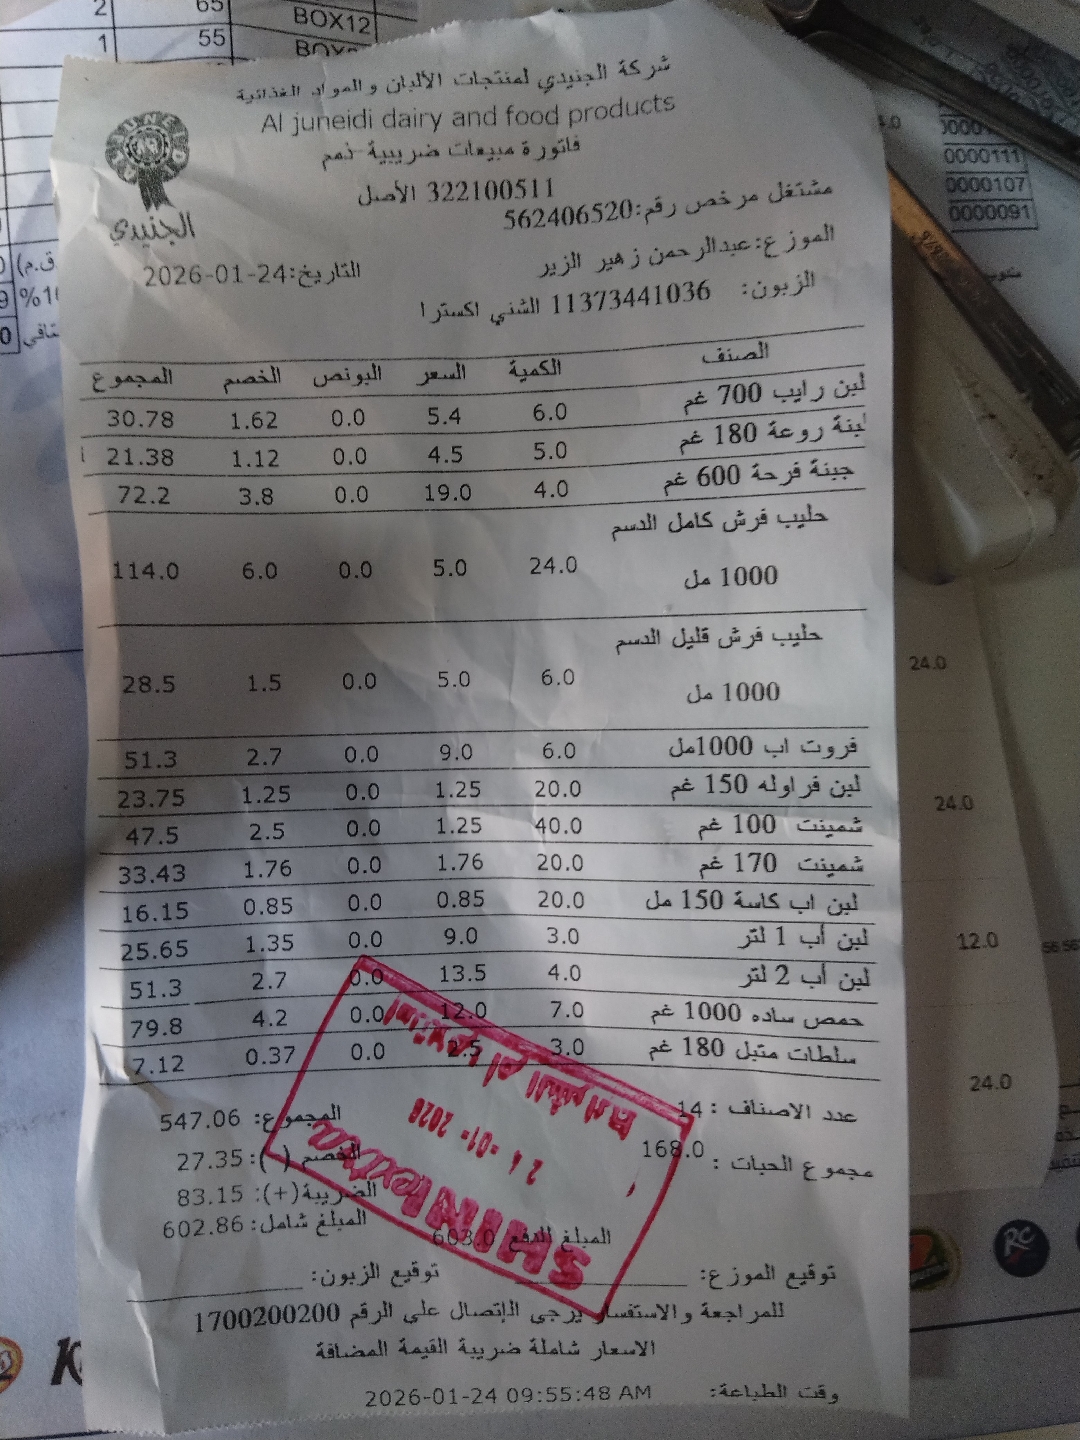 شركة الجنيدي لمنتجات الألبان و المواد الغذائية
Al juneidi dairy and food products
فاتورة مبيعات ضريبية-ذمم
322100511 الأصل
الجنيدي
مشتغل مرخص رقم:562406520
الموزع:عبدالرحمن زهير الزير
التاريخ:2026-01-24
الزبون: 11373441036 الشني اكسترا
الصنف الكمية السعر البونص الخصم المجموع
لبن رايب 700 غم 6.0 5.4 0.0 1.62 30.78
لبنة روعة 180 غم 5.0 4.5 0.0 1.12 21.38
جبنة فرحة 600 غم 4.0 19.0 0.0 3.8 72.2
حليب فرش كامل الدسم
1000 مل 24.0 5.0 0.0 6.0 114.0
حليب فرش قليل الدسم
1000 مل 6.0 5.0 0.0 1.5 28.5
فروت اب 1000مل 6.0 9.0 0.0 2.7 51.3
لبن فراوله 150 غم 20.0 1.25 0.0 1.25 23.75
شمينت 100 غم 40.0 1.25 0.0 2.5 47.5
شمينت 170 غم 20.0 1.76 0.0 1.76 33.43
لبن اب كاسة 150 مل 20.0 0.85 0.0 0.85 16.15
لبن أب 1 لتر 3.0 9.0 0.0 1.35 25.65
لبن أب 2 لتر 4.0 13.5 0.0 2.7 51.3
حمص ساده 1000 غم 7.0 12.0 0.0 4.2 79.8
سلطات متبل 180 غم 3.0 2.5 0.0 0.37 7.12
عدد الاصناف : 14
المجموع: 547.06
مجموع الحبات : 168.0
الخصم (-): 27.35
الضريبة(+): 83.15
المبلغ شامل: 602.86
المبلغ الدفع 603.0
SHINIextra
24 -01- 2026
توقيع الموزع: توقيع الزبون:
للمراجعة والاستفسار يرجى الإتصال على الرقم 1700200200
الاسعار شاملة ضريبة القيمة المضافة
وقت الطباعة: 2026-01-24 09:55:48 AM
2 65 BOX12
1 55
0000111
0000107
0000091
24.0
24.0
12.0
24.0
RC